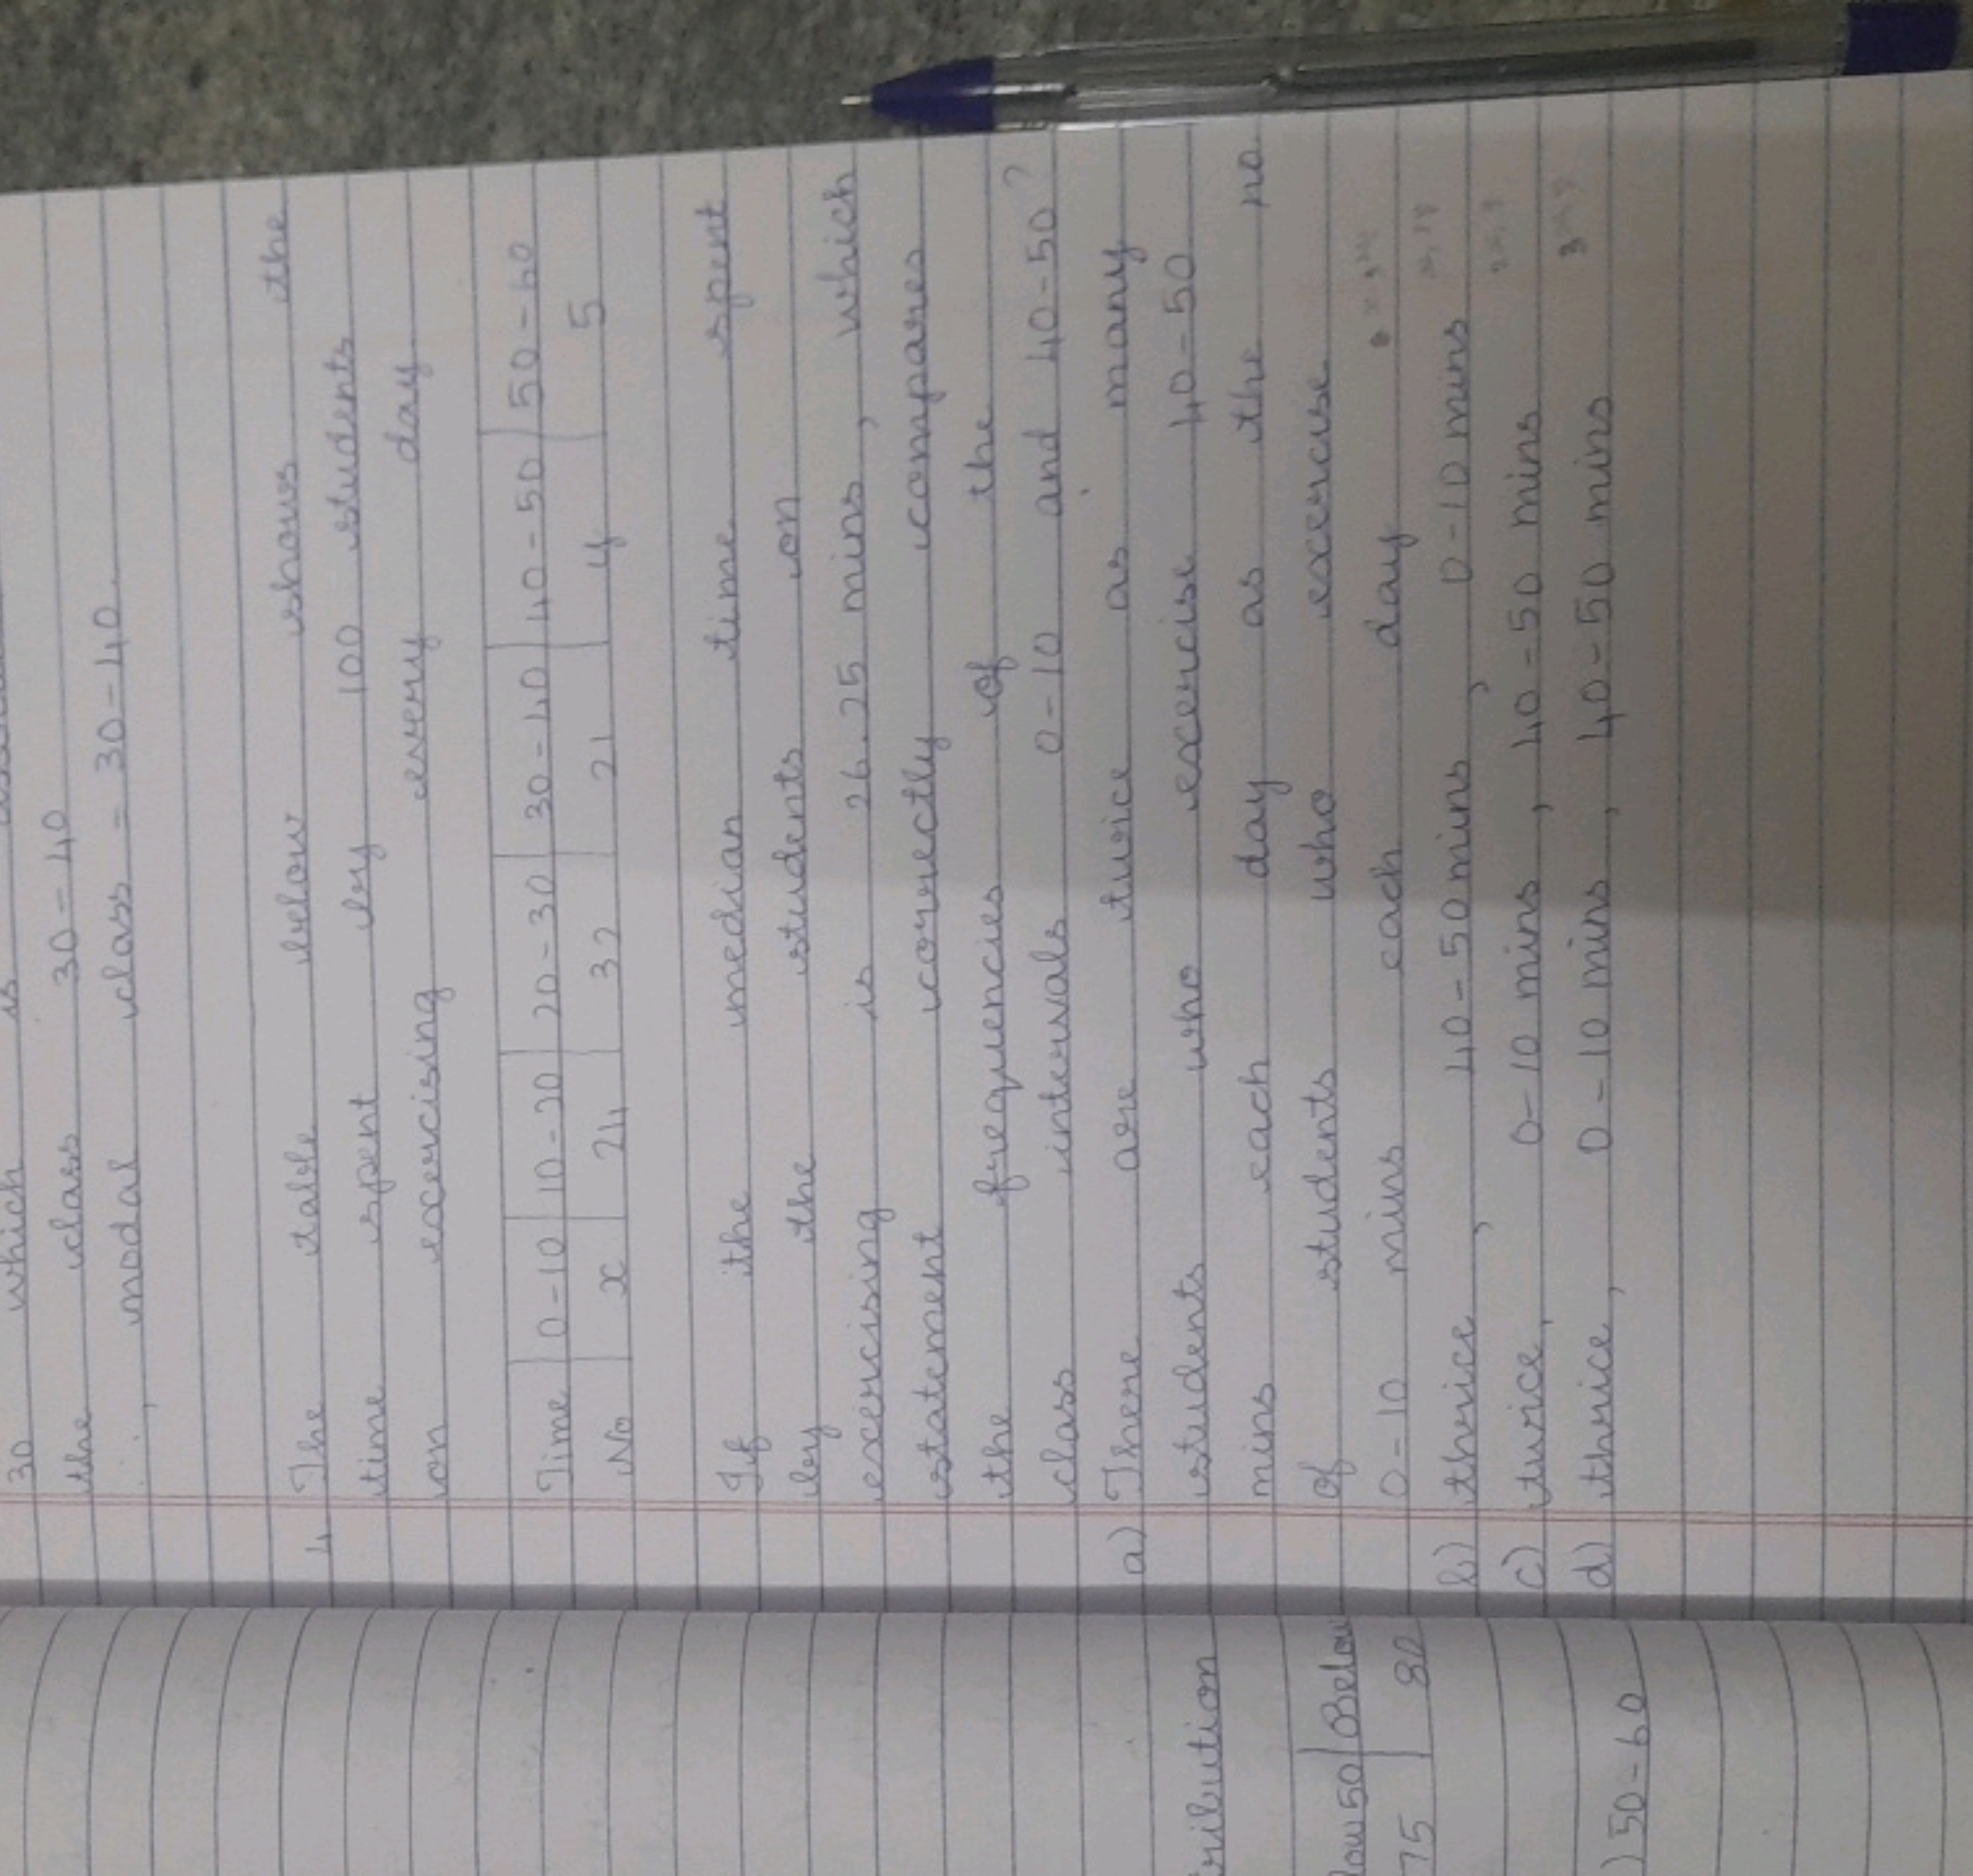 30 which is
the class 30-40
modal class = 30-40.
4 The table below shows the
time spent by 100 students
on excercising every day
Time 0-10 10-20 20-30 30-40 40-50 50-60
No x 24 32 21 y 5
If the median time spent
by the students on
excercising is 26.25 mins, which
statement correctly compares
the frequencies of the
class intervals 0-10 and 40-50?
a) There are twice as many
students who excercise 40-50
mins each day as the no
of students who excercise
0-10 mins each day
b) thrice, 40-50 mins, 0-10 mins
c) twice, 0-10 mins, 40-50 mins
d) thrice, 0-10 mins, 40-50 mins
tribution
low 50 Below
75 80
) 50-60